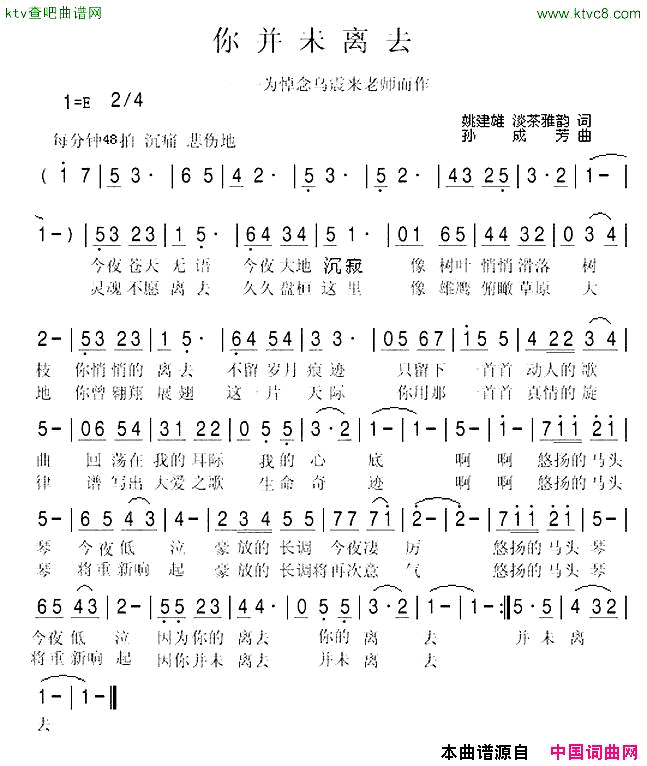 ktv查吧曲谱网 www.ktvc8.com
你并未离去
——为悼念乌震来老师而作
1=E 2/4
姚建雄 淡茶雅韵 词
孙成芳 曲
每分钟48拍 沉痛 悲伤地
( i 7 | 5 3· | 6 5 | 4 2· | 5 3· | 5 2· | 43 25 | 3·2 | 1 - |
1 - ) | 53 23 | 1 5· | 64 34 | 5 1· | 01 65 | 44 32 | 0 34 |
今夜苍天 无语 今夜大地 沉寂 像 树叶 悄悄滑落 树
灵魂不愿 离去 久久盘桓 这里 像 雄鹰 俯瞰草原 大
2 - | 53 23 | 1 5· | 64 54 | 3 3· | 05 67 | 5·5 | 4 22 34 |
枝 你悄悄的 离去 不留岁月 痕迹 只留下 一首首 动人的歌
地 你曾翱翔 展翅 这一片 天际 你用那 一首首 真情的旋
5 - | 06 54 | 31 22 | 0 5 5 | 3·2 | 1 - | 1 - | 5 - | 5 - | 7ii 2i |
曲 回荡在 我的耳际 我的 心 底 啊 啊 悠扬的马头
律 谱写出 大爱之歌 生命 奇 迹 啊 啊 悠扬的马头
5 - | 65 43 | 4 - | 2 34 5 | 55 34 | 77 7i | 2 - | 2 - | 7ii 2i | 5 - |
琴 今夜低 泣 豪放的 长调 今夜凄 厉 悠扬的 马头 琴
琴 将重新响 起 豪放的 长调将再次意 气 悠扬的 马头 琴
65 43 | 2 - | 55 23 | 44· | 0 5 5 | 3·2 | 1 - | 1 - :‖ 5·5 | 4 32 |
今夜 低 泣 因为你的 离去 你的 离 去 并未 离
将重 新响 起 因你并未 离去 你的 离 去
1 - | 1 - ‖
去
本曲谱源自 中国词曲网